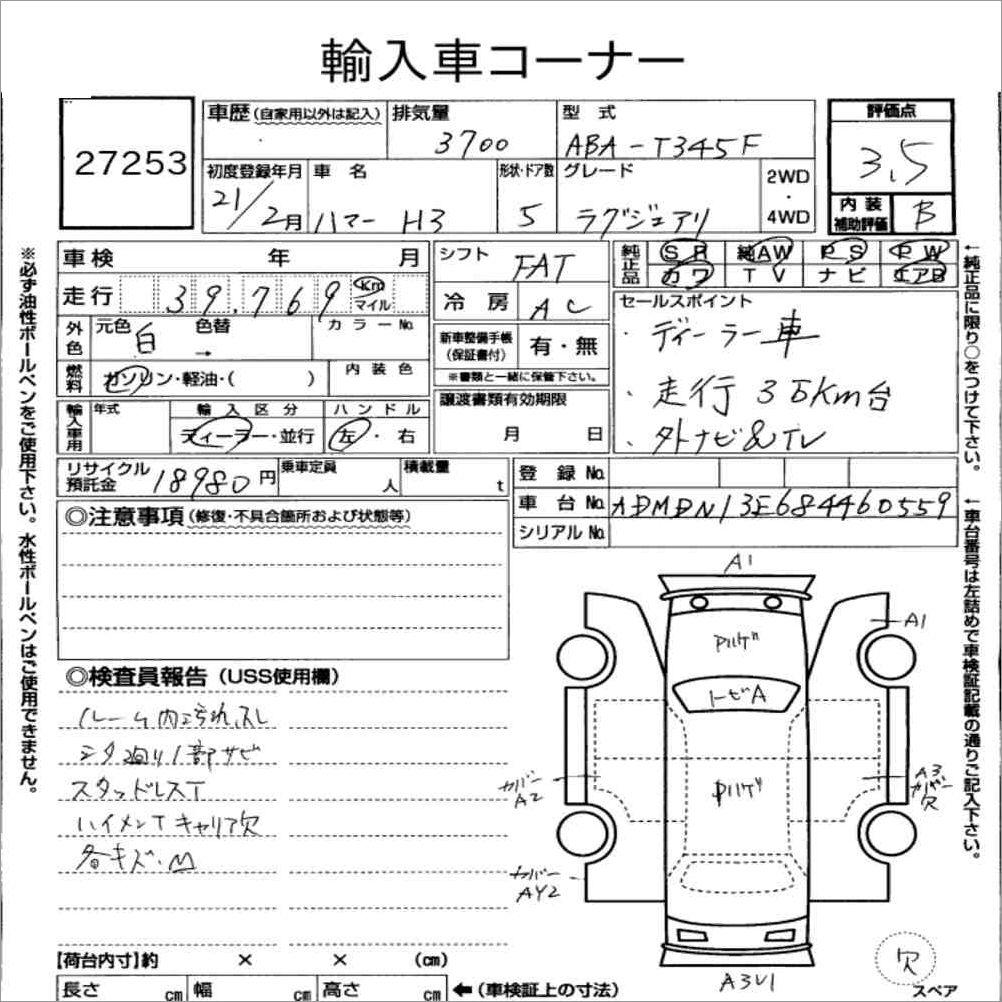 輸入車コーナー
27253
車歴(自家用以外は記入)
排気量
3700
型 式
ABA-T345F
評価点
3.5
初度登録年月
21/2月
車 名
ハマー H3
形状・ドア数
5
グレード
ラグジュアリ
2WD
・
4WD
内 装
補助評価
B
車検 年 月
走行 39,769 Km
マイル
外色
元色 白
色替 →
カラーNo.
燃料
ガソリン・軽油・( )
内 装 色
輸入車用
年式
輸 入 区 分
ディーラー・並行
ハ ン ド ル
左・右
シフト
FAT
冷 房
AC
新車整備手帳
(保証書付)
有・無
※書類と一緒に保管下さい。
譲渡書類有効期限
月 日
純正品
SR 純AW PS PW
カワ TV ナビ エアB
セールスポイント
・ディーラー車
・走行 3万Km台
・外ナビ&TV
リサイクル
預託金
18980円
乗車定員
人
積載量
t
登 録 No.
車 台 No. ADMDN13E684460559
シリアル No.
◎注意事項(修復・不具合箇所および状態等)
◎検査員報告(USS使用欄)
ルーム内汚れスレ
シタ廻り1部サビ
スタッドレスT
ハイメンTキャリア欠
各キズ・M
A1
A1
Pハゲ
トビA
Pハゲ
カバー
A2
A3
カバー
欠
カバー
AY2
A3U1
欠
スペア
【荷台内寸】約 × × (cm)
長さ cm 幅 cm 高さ cm ←(車検証上の寸法)
※必ず油性ボールペンをご使用下さい。水性ボールペンはご使用できません。
←純正品に限り○をつけて下さい。
←車台番号は左詰めで車検証記載の通りご記入下さい。